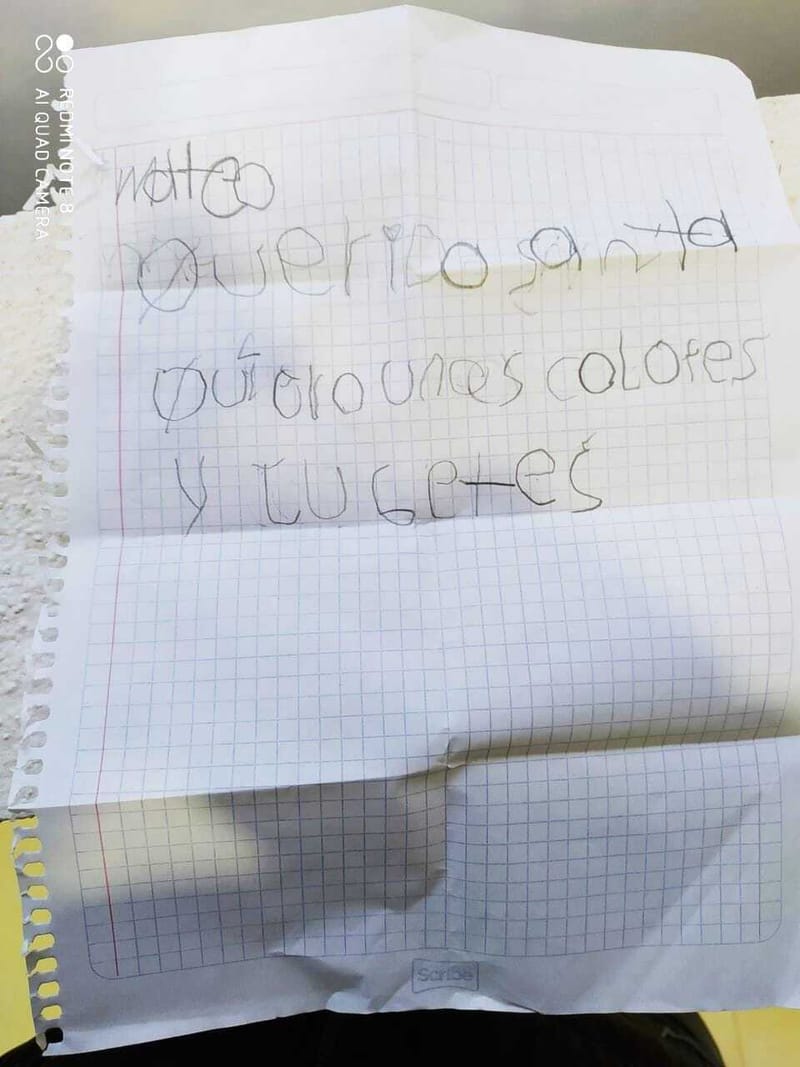 matteo
Querido santa
Quiero unos colores
y Jugetes
Scribe
REDMI NOTE 8
AI QUAD CAMERA